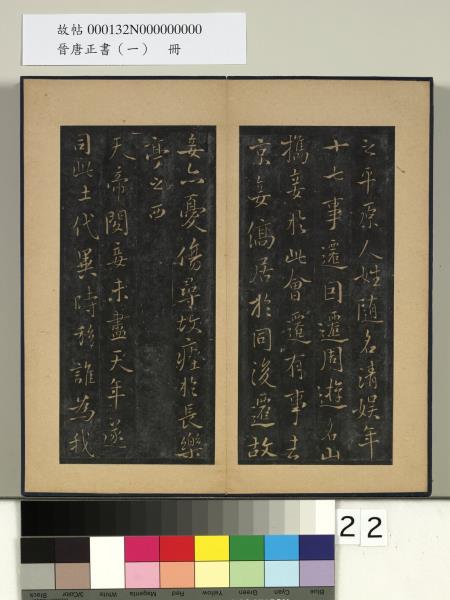 故帖 000132N000000000
晉唐正書（一） 冊
之平原人姓随名清娱年
十七事遷因遷周遊名山
攜妾於此會遷有事去
京妾僑居於同後遷故
妾亦憂傷尋故瘞於長樂
亭之西
天帝閔妾未盡天年遂
司此土代異時移誰為我
22
Blue Cyan Green Yellow Red Magenta White 3/Color Black